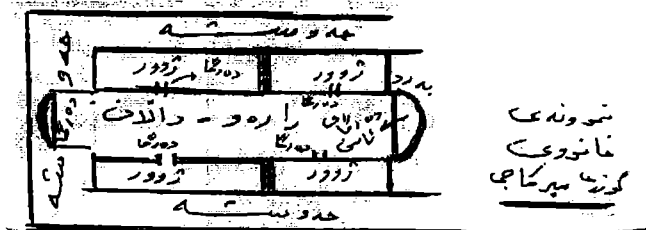 حەوشە
حەو
شە
ژوور
دەرگا
ژوور
دەرگا
دەرگا
ڕاڕەو - داڵان
دەرگا
دەرگا
ژوور
ژوور
حەوشە
نموونەی
خانووی
گوندی میرکاجی